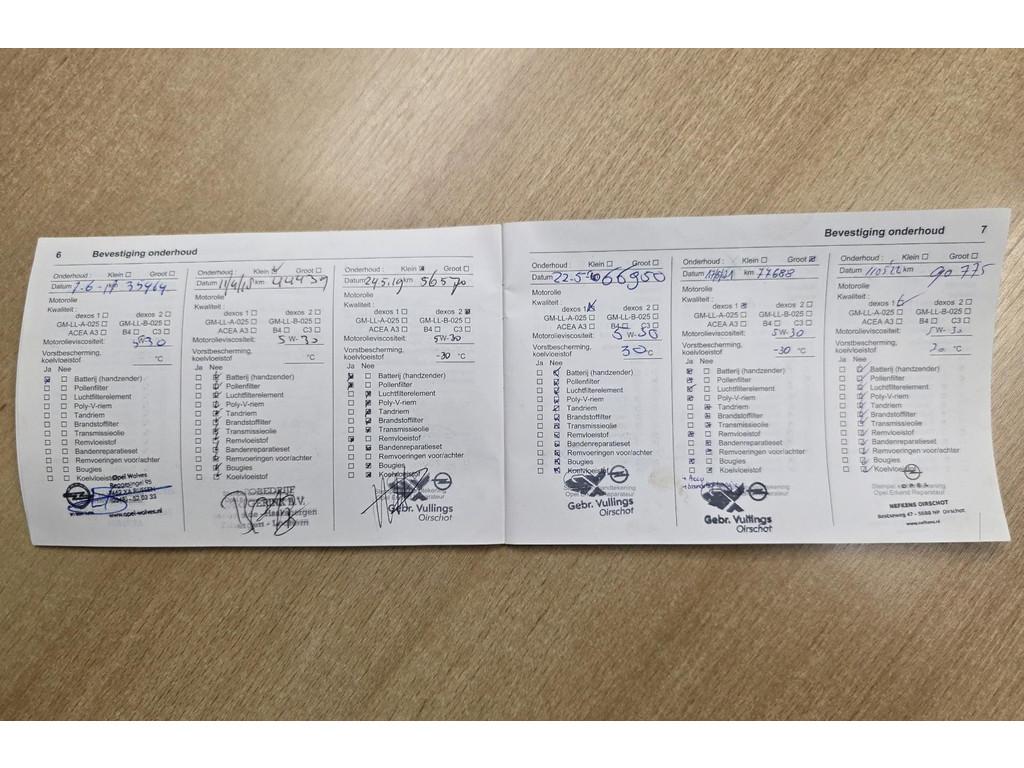 6 Bevestiging onderhoud
Onderhoud : Klein Groot
Datum 7-6-17 35414
Motorolie
Kwaliteit :
dexos 1 dexos 2
GM-LL-A-025 GM-LL-B-025
ACEA A3 B4 C3
Motorolieviscositeit: 5W-30
Vorstbescherming,
koelvloeistof °C
Ja Nee
Batterij (handzender)
Pollenfilter
Luchtfilterelement
Poly-V-riem
Tandriem
Brandstoffilter
Transmissieolie
Remvloeistof
Bandenreparatieset
Remvoeringen voor/achter
Bougies
Koelvloeistof
Opel Wolves
www.opel-wolves.nl
Onderhoud : Klein Groot
Datum km 44439
Motorolie
Kwaliteit :
dexos 1 dexos 2
GM-LL-A-025 GM-LL-B-025
ACEA A3 B4 C3
Motorolieviscositeit: 5W-30
Vorstbescherming,
koelvloeistof °C
Ja Nee
Batterij (handzender)
Pollenfilter
Luchtfilterelement
Poly-V-riem
Tandriem
Brandstoffilter
Transmissieolie
Remvloeistof
Bandenreparatieset
Remvoeringen voor/achter
Bougies
Koelvloeistof
Onderhoud : Klein Groot
Datum 24.5.19 km 56570
Motorolie
Kwaliteit :
dexos 1 dexos 2
GM-LL-A-025 GM-LL-B-025
ACEA A3 B4 C3
Motorolieviscositeit: 5W-30
Vorstbescherming,
koelvloeistof -30 °C
Ja Nee
Batterij (handzender)
Pollenfilter
Luchtfilterelement
Poly-V-riem
Tandriem
Brandstoffilter
Transmissieolie
Remvloeistof
Bandenreparatieset
Remvoeringen voor/achter
Bougies
Koelvloeistof
Gebr. Vullings
Oirschot
Bevestiging onderhoud 7
Onderhoud : Klein Groot
Datum 22-5-20 66950
Motorolie
Kwaliteit :
dexos 1 dexos 2
GM-LL-A-025 GM-LL-B-025
ACEA A3 B4 C3
Motorolieviscositeit: 5W-30
Vorstbescherming,
koelvloeistof 30 °C
Ja Nee
Batterij (handzender)
Pollenfilter
Luchtfilterelement
Poly-V-riem
Tandriem
Brandstoffilter
Transmissieolie
Remvloeistof
Bandenreparatieset
Remvoeringen voor/achter
Bougies
Koelvloeistof
Gebr. Vullings
Oirschot
Onderhoud : Klein Groot
Datum km 77688
Motorolie
Kwaliteit :
dexos 1 dexos 2
GM-LL-A-025 GM-LL-B-025
ACEA A3 B4 C3
Motorolieviscositeit: 5W-30
Vorstbescherming,
koelvloeistof -30 °C
Ja Nee
Batterij (handzender)
Pollenfilter
Luchtfilterelement
Poly-V-riem
Tandriem
Brandstoffilter
Transmissieolie
Remvloeistof
Bandenreparatieset
Remvoeringen voor/achter
Bougies
Koelvloeistof
+ Accu
Gebr. Vullings
Oirschot
Onderhoud : Klein Groot
Datum 110522 km 90775
Motorolie
Kwaliteit :
dexos 1 dexos 2
GM-LL-A-025 GM-LL-B-025
ACEA A3 B4 C3
Motorolieviscositeit: 5W-30
Vorstbescherming,
koelvloeistof 30 °C
Ja Nee
Batterij (handzender)
Pollenfilter
Luchtfilterelement
Poly-V-riem
Tandriem
Brandstoffilter
Transmissieolie
Remvloeistof
Bandenreparatieset
Remvoeringen voor/achter
Bougies
Koelvloeistof
Opel Erkend Reparateur
NEFKENS OIRSCHOT
47 - 5688 HP Oirschot
www.nefkens.nl